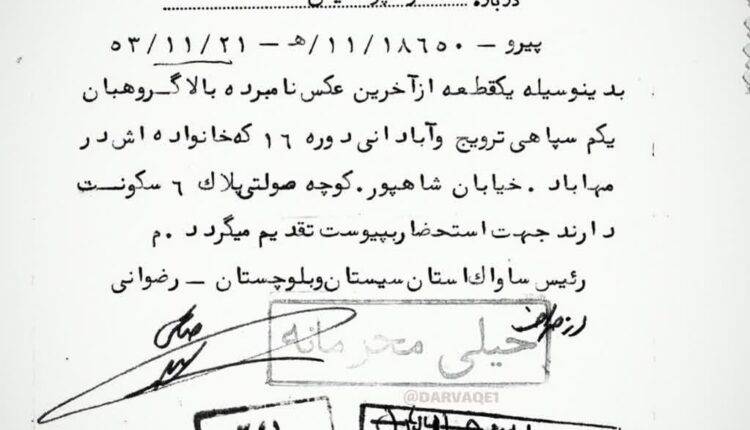 درباره
پیرو – ۱۱/۱۸۶۵۰/هـ – ۵۳/۱۱/۲۱
بدینوسیله یکقطعه ازآخرین عکس نامبرده بالا گروهبان
یکم سپاهی ترویج وآبادانی دوره ۱۶ که خانواده اش در
مهاباد . خیابان شاهپور. کوچه صولتی پلاك ۶ سکونت
دارند جهت استحضار بپیوست تقدیم میگردد .م
رئیس ساواك استان سیستان وبلوچستان – رضوانی
از طرف
خیلی محرمانه
@DARVAQE1